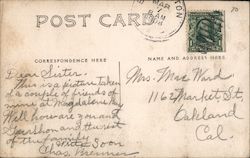 TON
MAR
8 AM
POST CARD
CORRESPONDENCE HERE
NAME AND ADDRESS HERE
Dear Sister.
This is a picture taken
of a couple of friends of
mine at Magdalena Bay
Well how are you and
and the rest
of the family.
Write Soon
Chas.
Mrs. Mae Ward
1162 Market St.
Oakland
Cal.